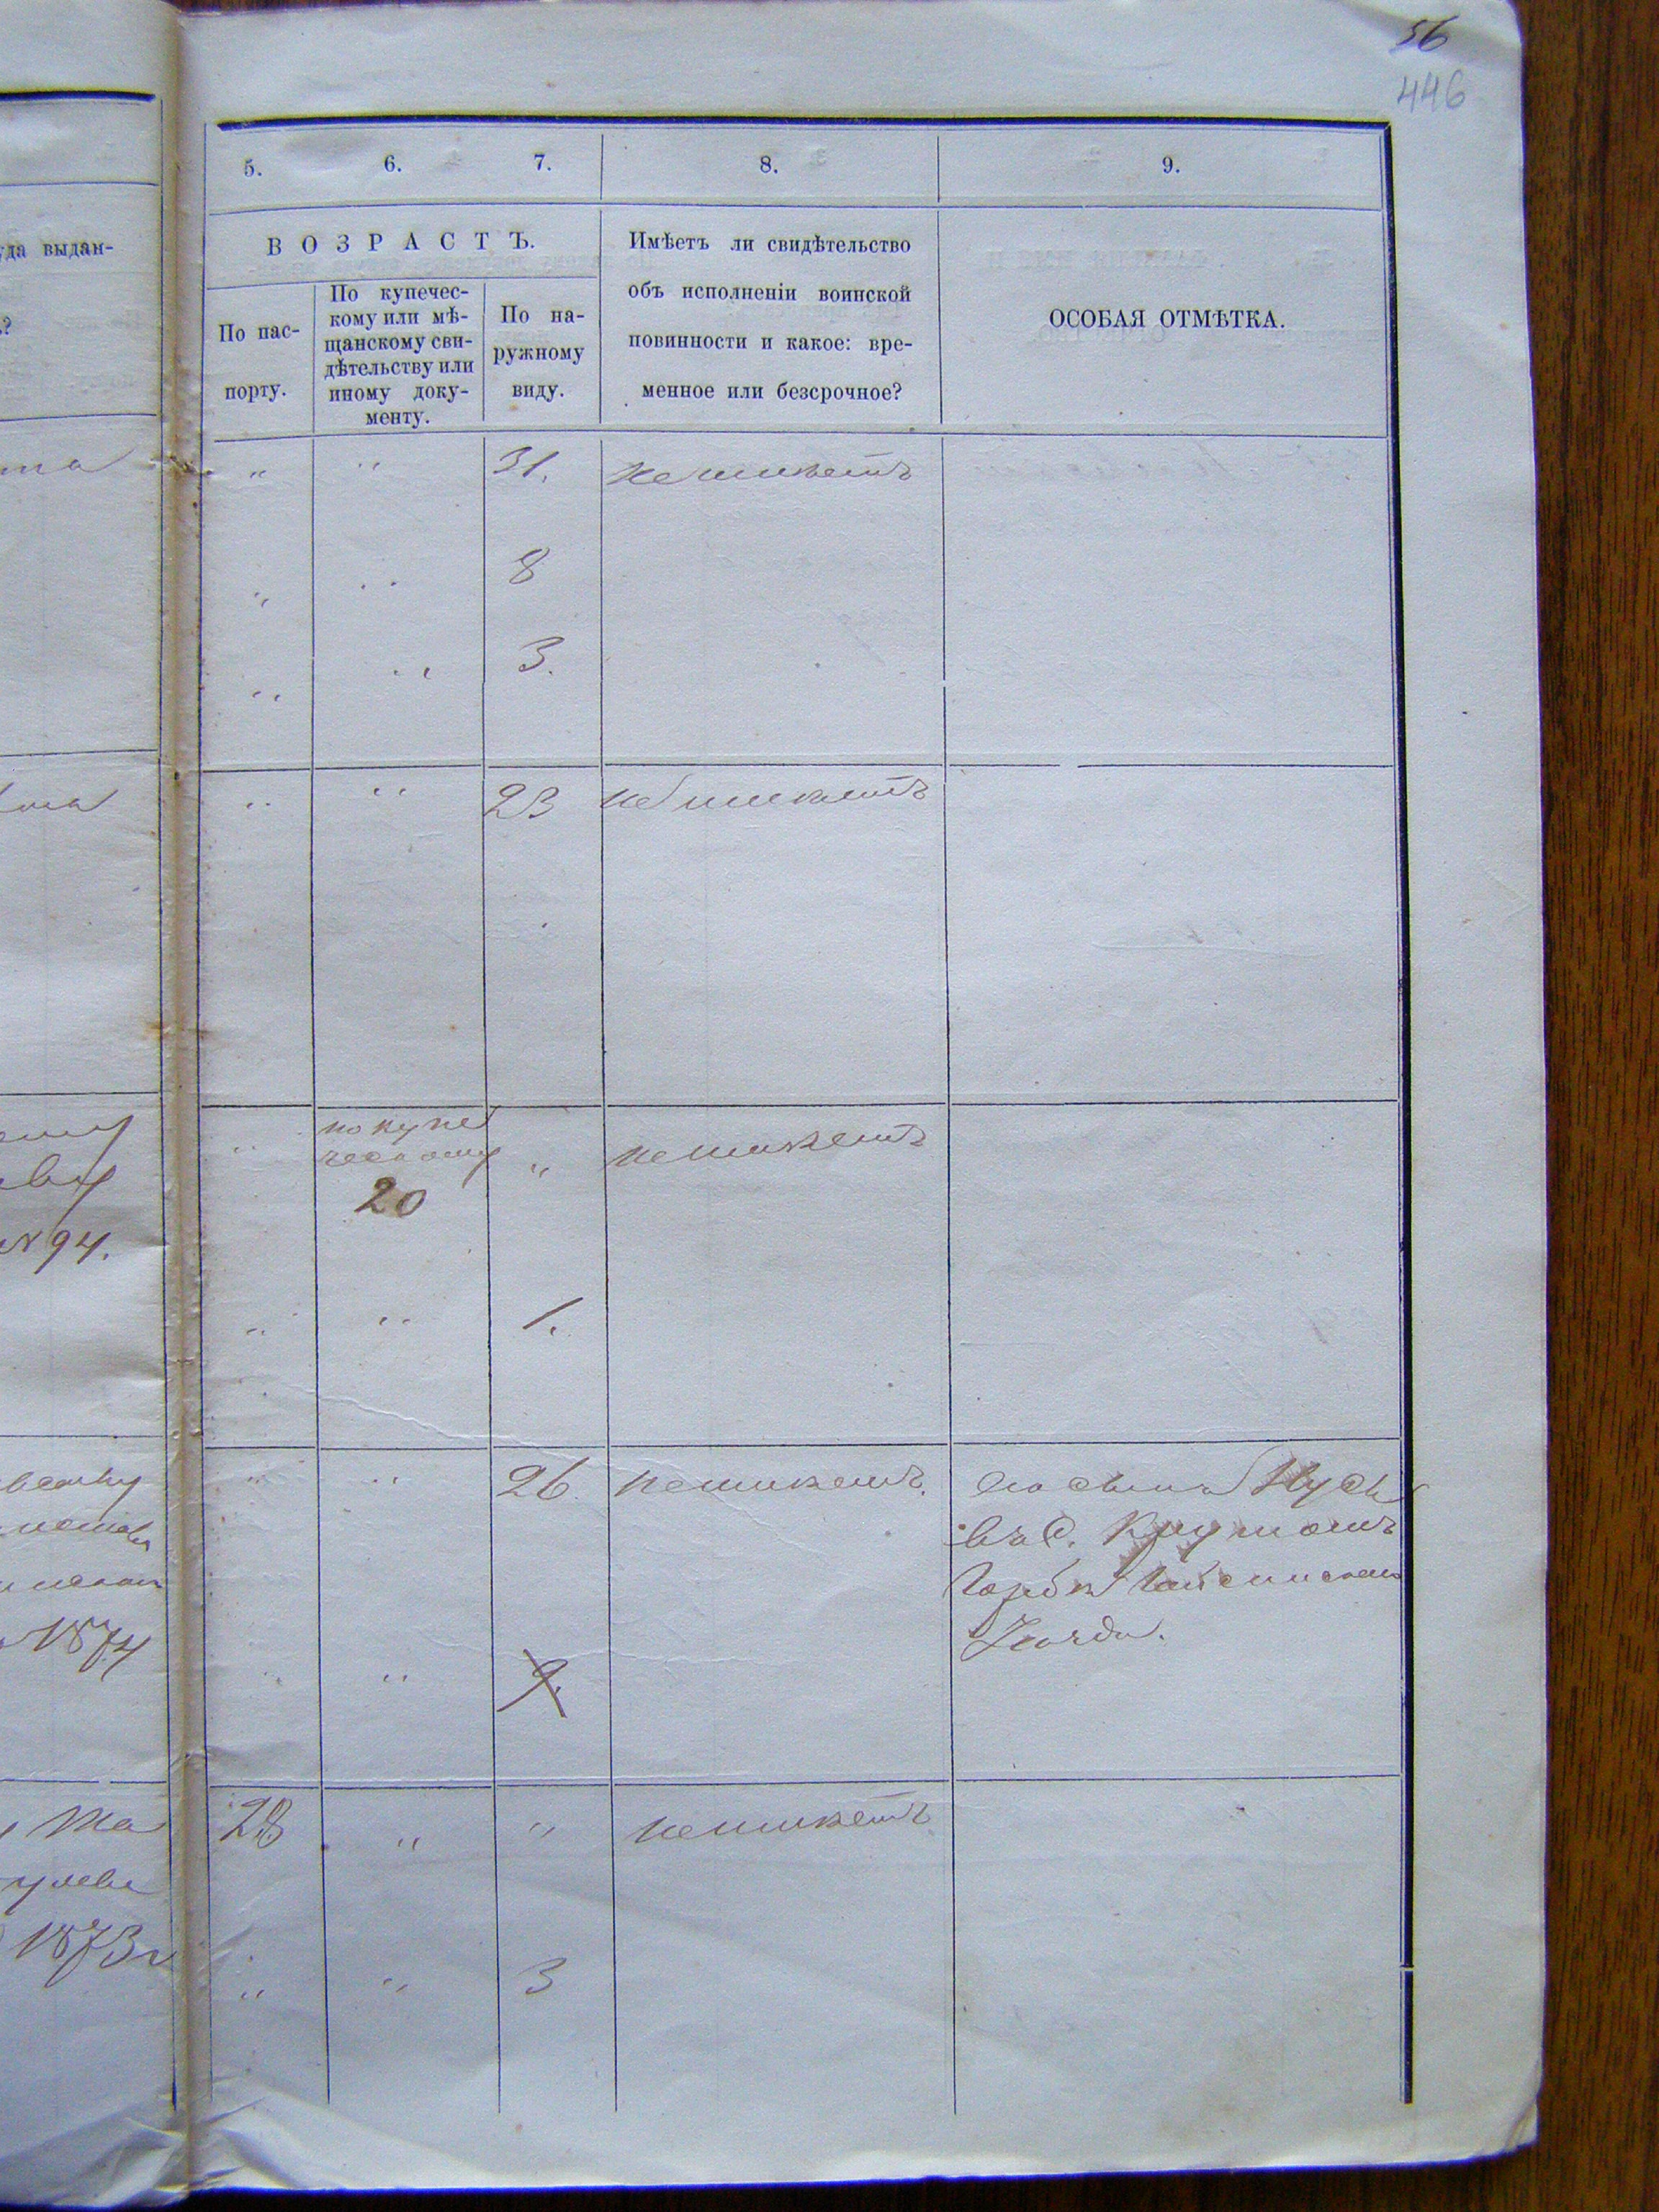 56
446
5. 6. 7. 8. 9.
уда выдан-
?
ВОЗРАСТЪ.
По пас-
порту.
По купечес-
кому или мѣ-
щанскому сви-
дѣтельству или
иному доку-
менту.
По на-
ружному
виду.
Имѣетъ ли свидѣтельство
объ исполненіи воинской
повинности и какое: вре-
менное или безсрочное?
ОСОБАЯ ОТМѢТКА.
та „ „ 31. не имѣетъ
„ „ 8
„ „ 3.
„ „ 23 не имѣетъ
„ по купе
ческому „ не имѣетъ
20
№ 94.
„ „ 1.
„ „ 26. не имѣетъ.
его сынъ
въ С.
Уѣзда.
1874
„ „ 9.
28 „ „ не имѣетъ
1873 г
„ „ 3